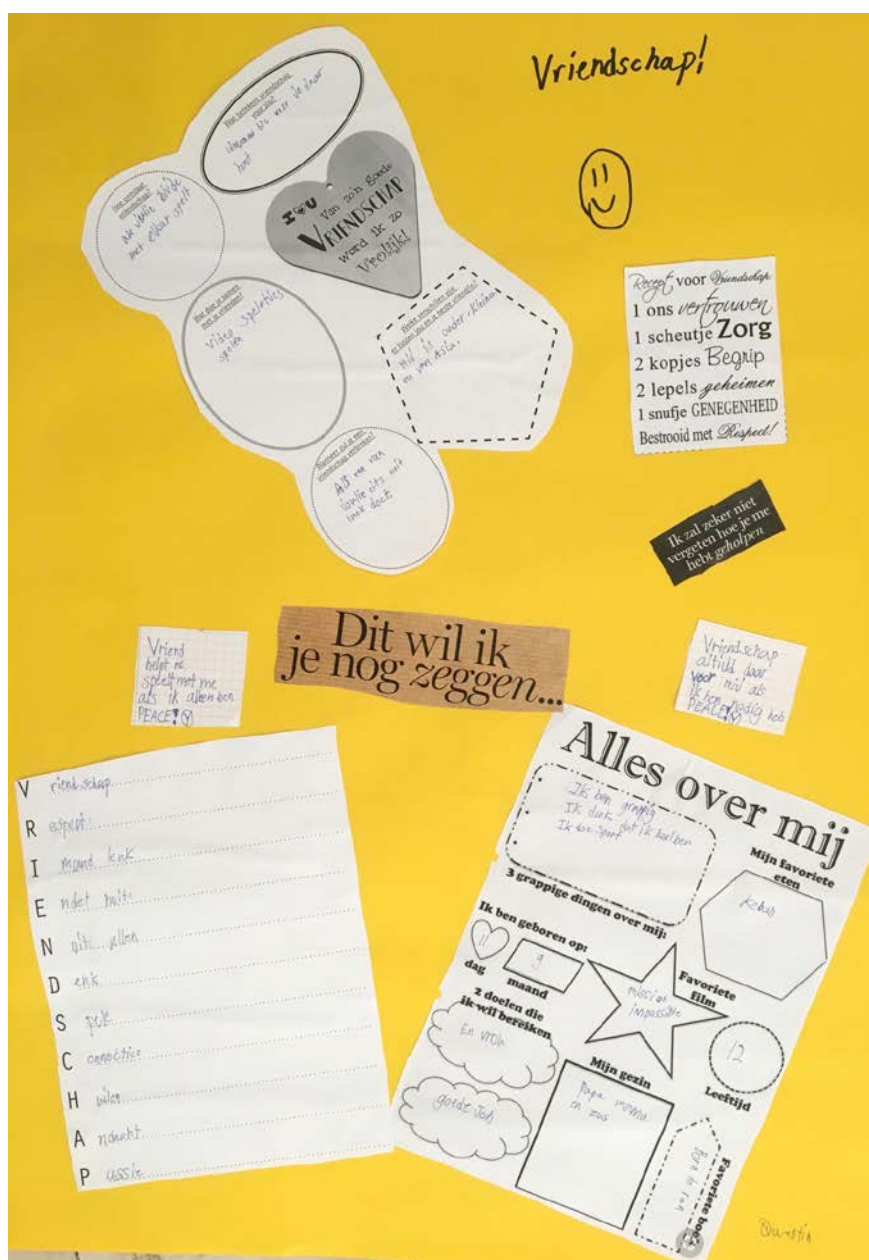 Vriendschap!
Wat betekent vriendschap
voor jou?
hoort
Hoe ontstaat
vriendschap?
met elkaar speelt
I U
Van zo'n goede
VRIENDSCHAP
word ik zo
Vrolijk!
Wat doe je samen
met je vrienden?
Video spelletjes
spelen
Welke verschillen zijn
er tussen jou en je beste vriend(in)?
Hij is ouder, kleiner
en van Asia.
Wanneer zul je een
vriendschap verbreken?
Als een van
doet.
Recept voor Vriendschap:
1 ons vertrouwen
1 scheutje Zorg
2 kopjes Begrip
2 lepels geheimen
1 snufje GENEGENHEID
Bestrooid met Respect!
Ik zal zeker niet
vergeten hoe je me
hebt geholpen
Dit wil ik
je nog zeggen...
Vriend
helpt me
speelt met me
als ik alleen ben
PEACE!
Vriendschap
altijd daar
voor mij als
ik hen nodig heb
PEACE!
V riendschap
R espect
I
E
N
D enk
S
C onnectie
H
A
P assie
Alles over mij
Ik ben grappig
Ik denk dat ik kaal ben
3 grappige dingen over mij:
Mijn favoriete
eten
Kebab
Ik ben geboren op:
11
dag
9
maand
Favoriete
film
mission
impossible
2 doelen die
ik wil bereiken
goede Job
12
Leeftijd
Mijn gezin
Papa mama
en zus
Favoriete boek
Quentin